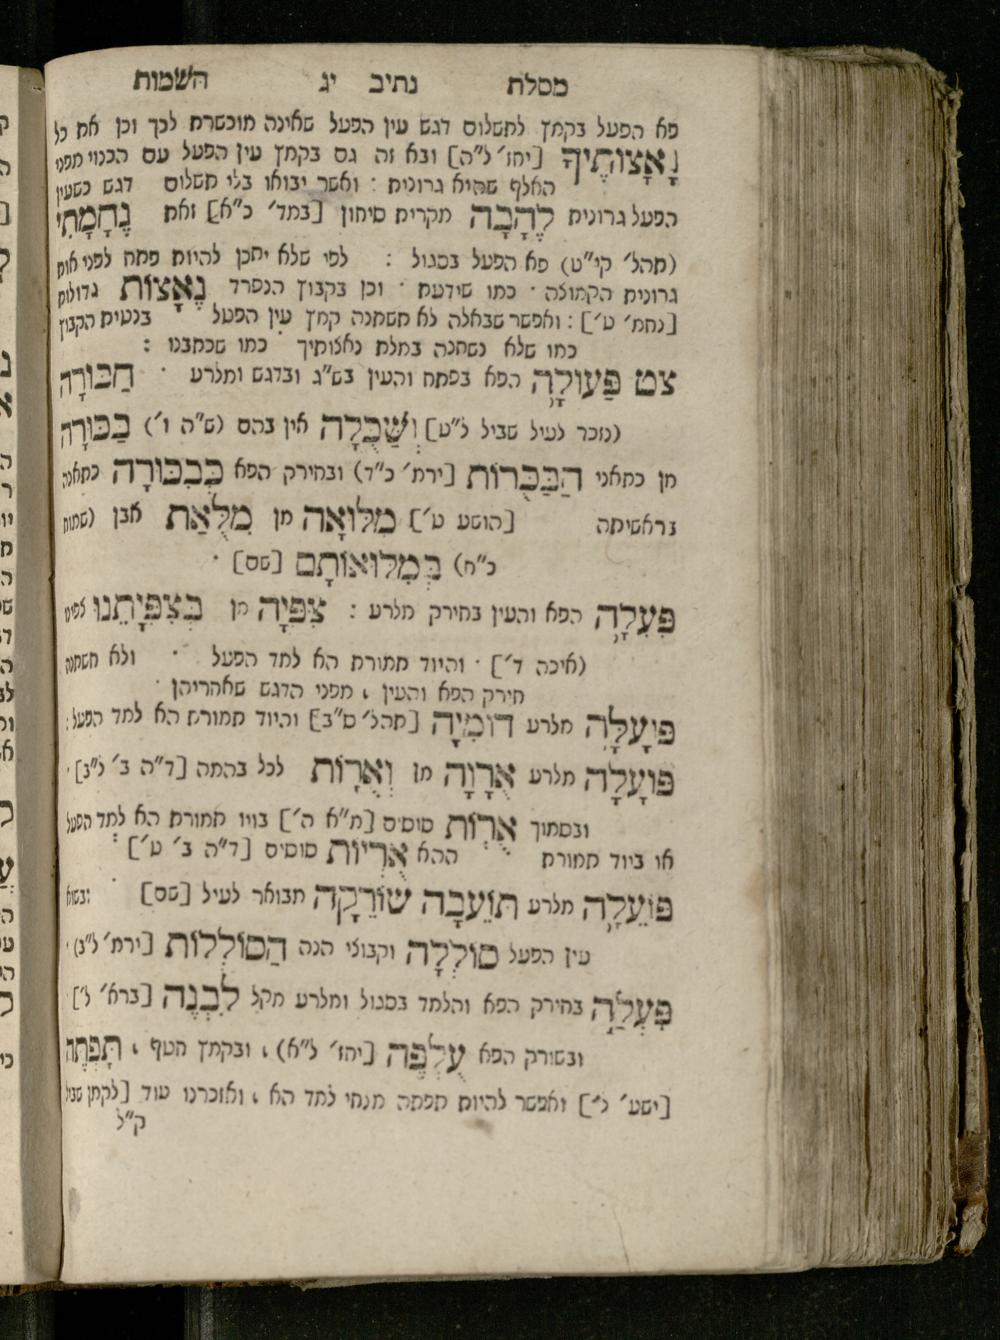 מסלת נתיב יג השמות
פא הפעל בקמץ לתשלום דגש עין הפעל שאינה מוכשרת לכך וכן את כל
נָאָצוֹתֶיךָ [יחז׳ ל״ה] ובא זה גם בקמץ עין הפעל עם הכנוי מפני
האלף שהיא גרונית : ואשר יבואו בלי תשלום דגש כשעין
הפעל גרונית לֶהָבָה מקרית סיחון [במד׳ כ״א] זאת נֶחָמָתִי
(תהל׳ קי״ט) פא הפעל בסגול : לפי שלא יתכן להיות פתח לפני אות
גרונית הקמוצה · כמו שידעת · וכן בקבוץ הנפרד נֶאָצוֹת גדולות
[נחמ׳ ט׳] : ואפשר שבאלה לא תשתנה קמץ עין הפעל בנטית הקבוץ
כמו שלא נשתנה במלת נאצותיך כמו שכתבנו :
צט פַּעוּלָּה הפא בפתח והעין בש״ג ובדגש ומלרע · חַבּוּרָה
(נזכר לעיל שביל ל״ט] וְשַׁכֻּלָה אין בהם (ש״ה ו׳) בַּכּוּרָה
מן כתאני הַבַּכֻּרוֹת [ירמ׳ כ״ד) ובחירק הפא כְּבִכּוּרָה כתאנה
בראשיתה [הושע ט׳] מִלּוּאָה מן מִלֻּאַת אבן (שמות
כ״ח) בְּמִלּוּאוֹתָם [שם] ·
פִּעִלָּה הפא והעין בחירק מלרע : צִפִּיָּה מן בְּצִפִּיָּתֵנוּ צפינו
(איכה ד׳] · והיוד תמורת הא למד הפעל · ולא תשתנה
חירק הפא והעין , מפני הדגש שאחריהן ·
פּוּעִלָּה מלרע דוּמִיָּה [תהל׳ ס״ב] והיוד תמורת הא למד הפעל :
פּוּעָלָה מלרע אֻרָוָה מן וְאֻרָוֹת לכל בהמה [ד״ה ב׳ ל״ב] ·
ובסמוך אֻרְוֹת סוסים [מ״א ה׳] בויו תמורת הא למד הפעל
או ביוד תמורת ההא אֻרְיוֹת סוסים [ד״ה ב׳ ט׳] ·
פּוֹעֵלָה מלרע תּוֹעֵבָה שׂוֹרֵקָה תבואר לעיל [שם] ובשוא
עין הפעל סוֹלְלָה וקבוצי הנה הַסּוֹלְלוֹת [ירמ׳ ל״ב) ·
פִּעְלֶה בחירק הפא והלמד בסגול ומלרע מקל לִבְנֶה [ברא׳ ל׳]
ובשורק הפא עֻלְפֶּה [יחז׳ ל״א) , ובקמץ חטף , תָּפְתֶּה
[ישע׳ ל׳] ואפשר להיות תפתה מנחי למד הא , ואזכרנו עוד [לקמן שביל
ק״ל